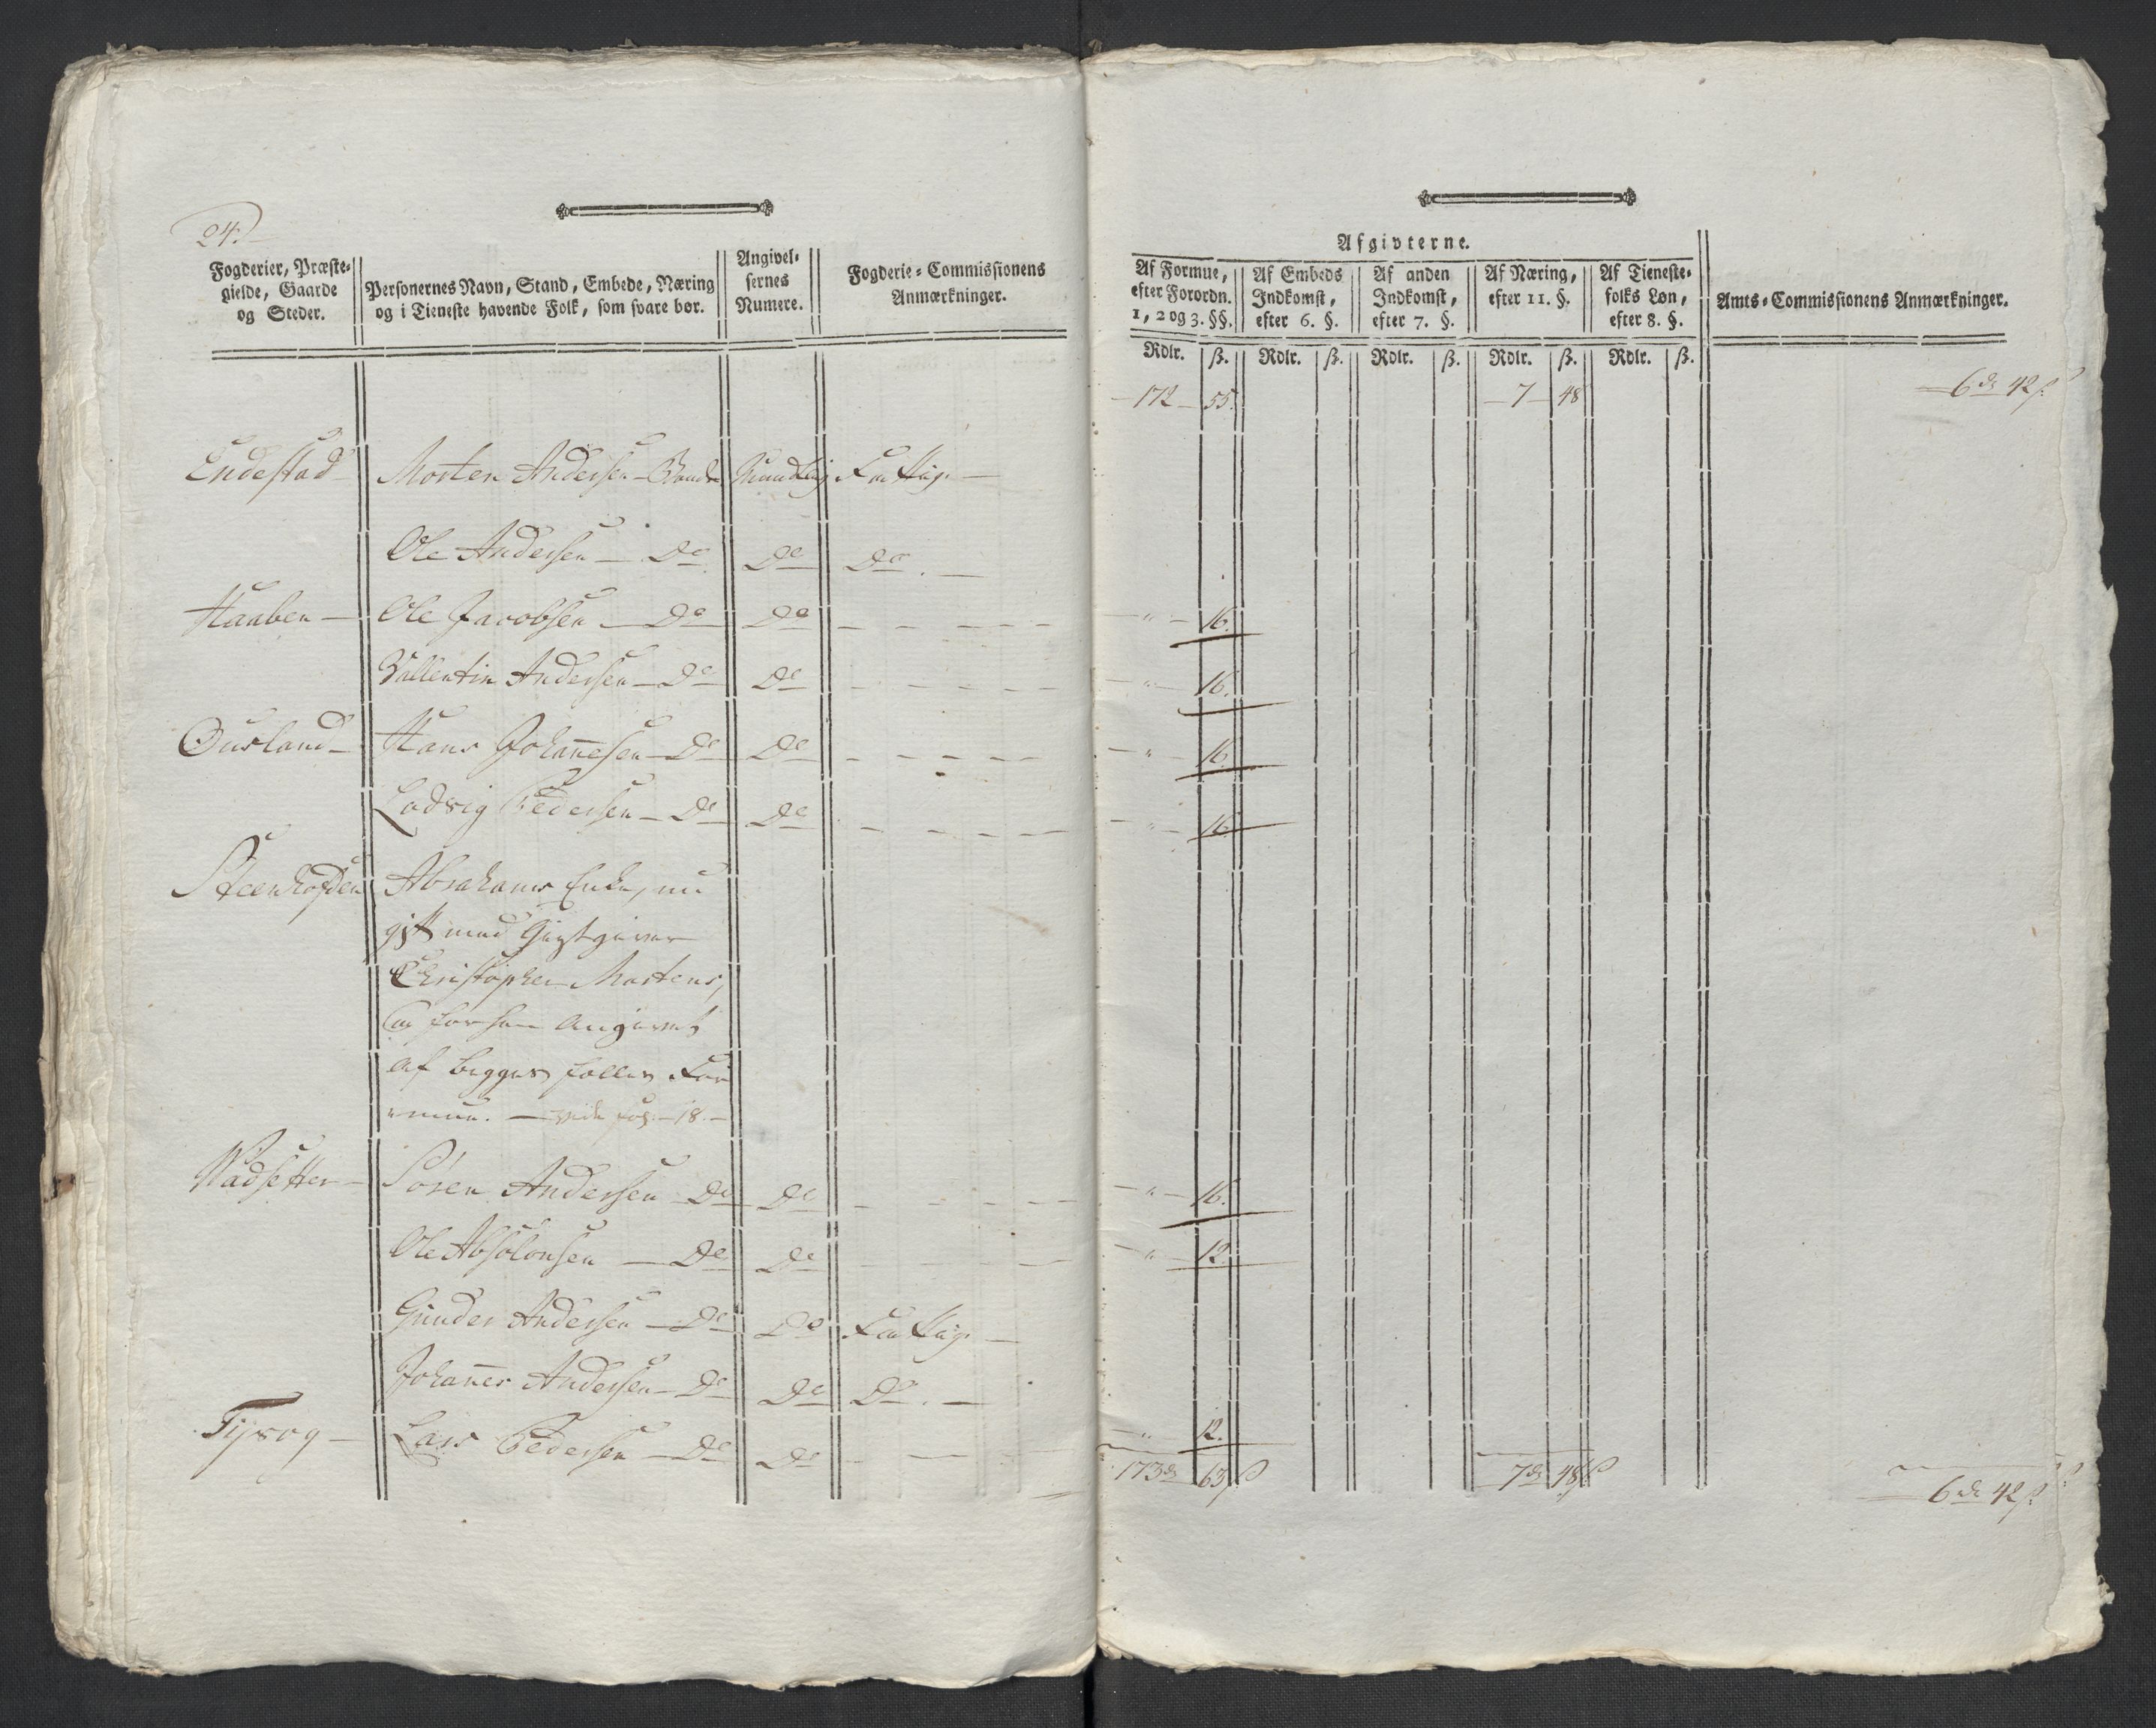 24.
Fogderier, Præste-
gielde, Gaarde
og Steder.
Personernes Navn, Stand, Embede, Næring
og i Tieneste havende Folk, som svare bør.
Angivel-
sernes
Numere.
Fogderie-Commissionens
Anmærkninger.
Afgivterne.
Af Formue,
efter Forordn.
1, 2 og 3. §§.
Af Embeds
Indkomst,
efter 6. §.
Af anden
Indkomst,
efter 7. §.
Af Næring,
efter 11. §.
Af Tieneste-
folks Løn,
efter 8. §.
Amts-Commissionens Anmærkninger.
Rdlr. ß. Rdlr. ß. Rdlr. ß. Rdlr. ß. Rdlr. ß.
172 55. 7 48 6 d 42 ß.
Endestad Morten Andersen - Bonde Mundtlig Fattig. —
Ole Andersen — Do Do Do. —
Haaben — Ole Jacobsen — Do Do — — — — „ — 16.
Vallentin Andersen — Do Do — — — — „ — 16.
Ousland — Hans Johanesen — Do Do — — — — „ — 16
Lodvig Pedersen — Do Do — — — — „ — 16
Steenhofden Abrahams Enke, nu
gift med Giestgiver
Christopher Mortens,
er for ham angivet
af begges fælles For
mue. — vide fol. 18. —
Vadsetter — Søren Andersen Do Do — — — „ — 16.
Ole Absolonsen — Do Do — — — „ — 12.
Gunder Andersen — Do Do Fattig. —
Johanes Andersen — Do Do Do. —
Tysog — Lars Pedersen — Do Do — — — „ 12.
173 d 63 ß 7 d 48 ß 6 d 42 ß.